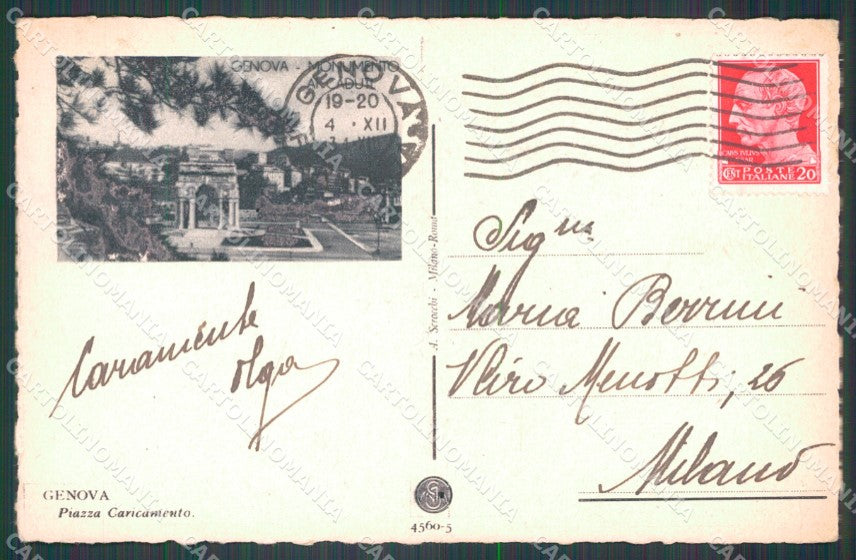 GENOVA - MONUMENTO
CADUTI
GENOVA
19-20
4 · XII
POSTE
ITALIANE
CENT 20
Sig.na
Maria Borrini
V Ciro Menotti, 26
Milano
Caramente
Olga
A. Scrocchi - Milano-Roma
GENOVA
Piazza Caricamento.
4560-5
CARTOLINOMANIA